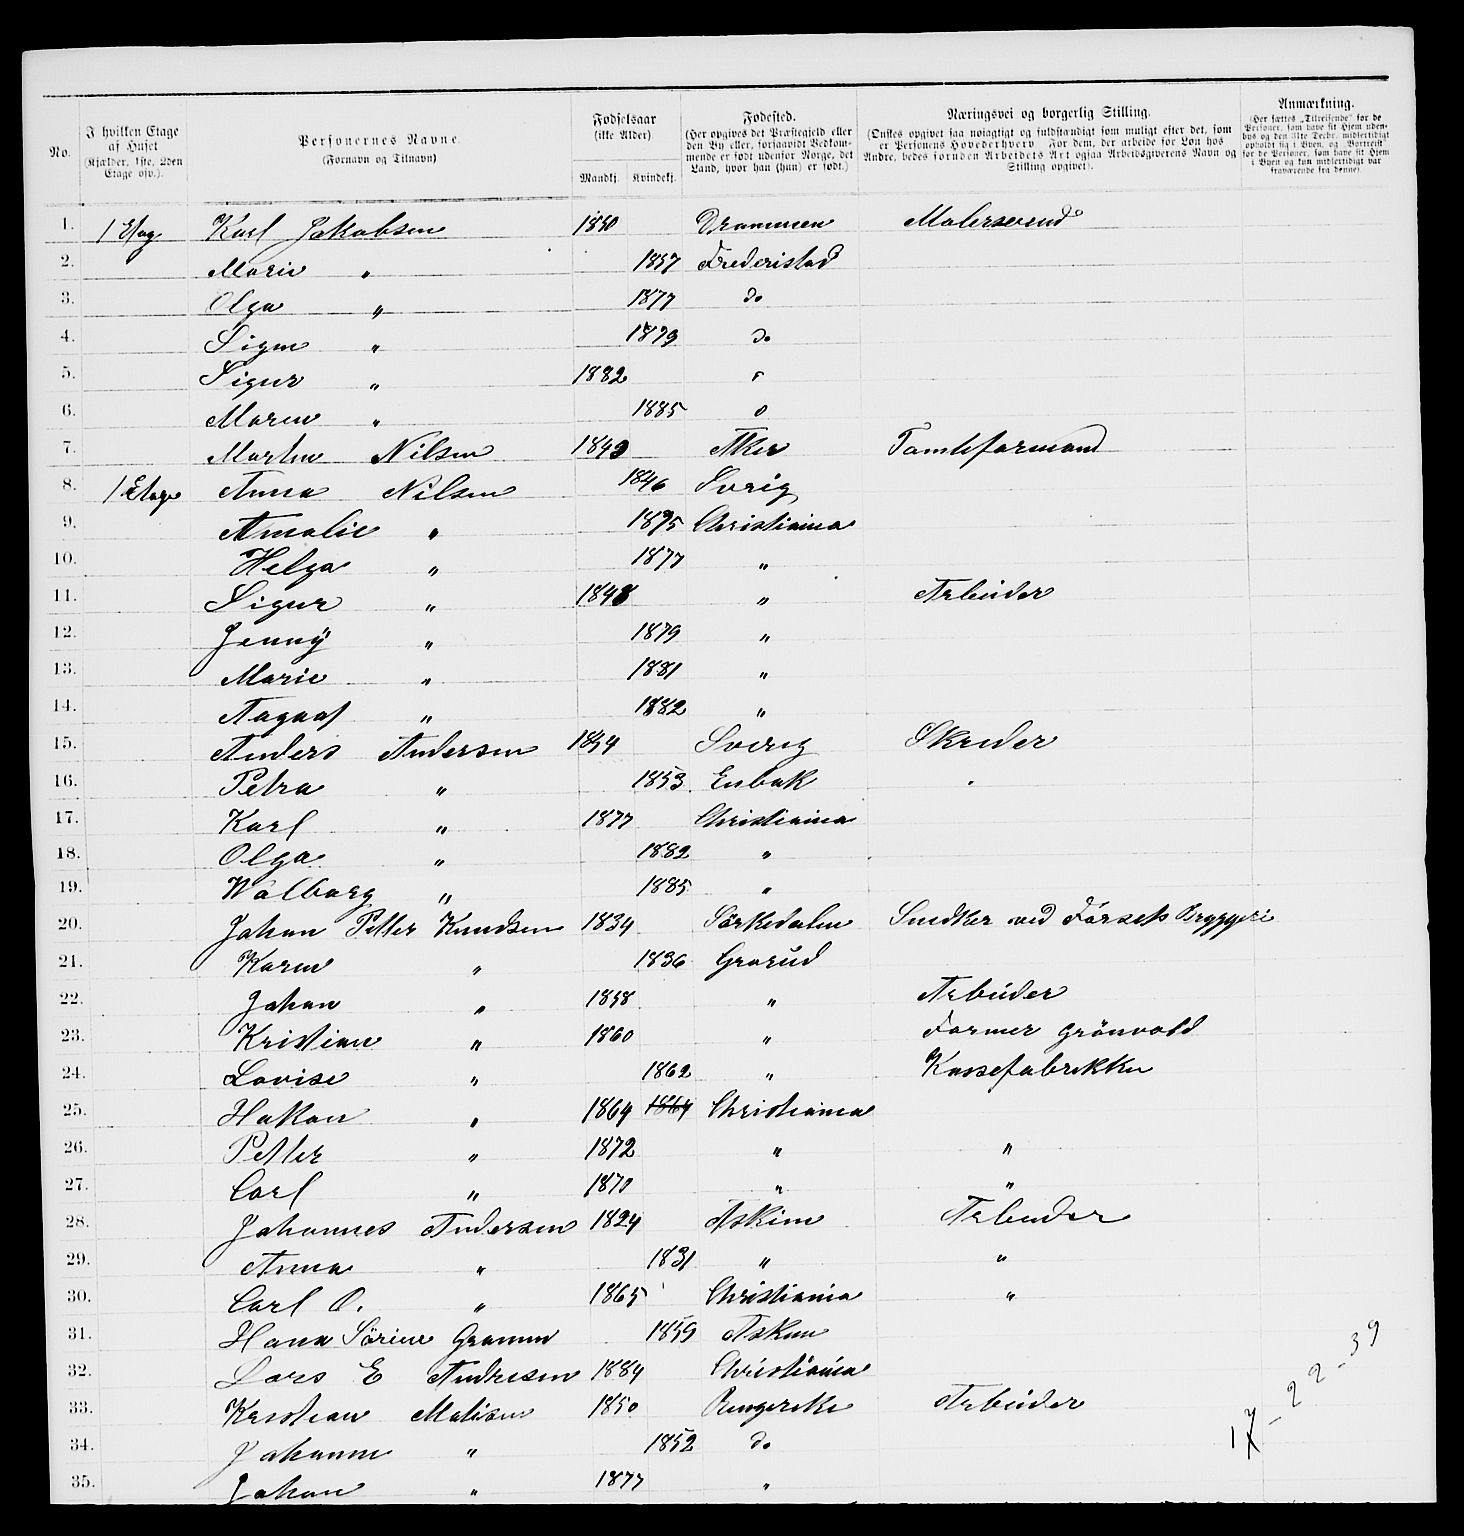 No.
I hvilken Etage af Huset (Kjælder, 1ste, 2den Etage osv.).
Personernes Navne. (Fornavn og Tilnavn)
Fødselsaar (ikke Alder). Mandkj. Kvindekj.
Fødested. (Her opgives det Præstegjeld eller den By eller, forsaavidt Bedkommende er født udenfor Norge, det Land, hvor han (hun) er født.)
Næringsvei og borgerlig Stilling. (Ønskes opgivet saa nøiagtigt og fuldstændigt som muligt efter det, som er Personens Hovederhverv. For dem, der arbeide for Løn hos Andre, bedes foruden Arbeidets Art ogsaa Arbeidsgiverens Navn og Stilling opgivet).
Anmærkning. (Her sættes „Tilreisende" for de Personer, som have sit Hjem udenbys og den 31te Decbr. midlertidigt opholdt sig i Byen, og „Bortreist" for de Personer, som have sit Hjem i Byen og kun midlertidigt var fraværende fra denne).
1. 1 Etag Karl Jakobsen 1850 Drammen Malersvend
2. Marie " 1857 Frederistad
3. Olga " 1877 do
4. Signe " 1879 do
5. Sigur " 1882
6. Maren " 1885 o
7. Martin Nilsen 1843 Aker Tomteformand
8. 1 Etage Anna Nilsen 1846 Sverig
9. Amalie " 1875 Christiania
10. Helga " 1877 "
11. Sigur " 1848 " Arbeider
12. Jenny " 1879 "
13. Marie " 1881 "
14. Aagaat " 1882 "
15. Anders Andersen 1854 Sverig Skreder
16. Petra " 1853 Enbak
17. Karl " 1877 Christiania
18. Olga " 1882 "
19. Walborg " 1885 "
20. Johan Petter Knudsen 1834 Sørkedalen Snedker ved Forseth Bryggeri
21. Karen " 1836 Grorud
22. Johan " 1858 " Arbeider
23. Kristian " 1860 " Former Grönvold
24. Lovise " 1862 " Kassefabrikken
25. Hakon " 1864 1864 Christiania
26. Petter " 1872 " "
27. Carl " 1870 " "
28. Johannes Andersen 1824 Askim Arbeider
29. Anna " 1831 " "
30. Carl O. " 1865 Christiania "
31. Hana Sörine Gramm 1859 Askim
32. Lars E Andresen 1884 Christiania
33. Kristian Matisen 1850 Ringerike Arbeider
34. Johanne " 1852 do
35. Johan " 1877 "
17 - 22 - 39